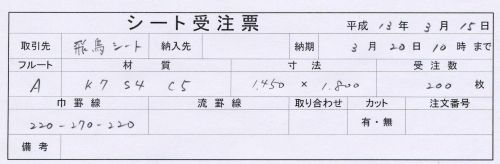 シート受注票 平成 13年 3月 15日
取引先 飛鳥シート 納入先 納期 3月 20日 10時まで
フルート 材質 寸法 受注数
A K7 S4 C5 1,450 × 1,800 200枚
巾罫線 流罫線 取り合わせ カット 注文番号
220-270-220 有・無
備考